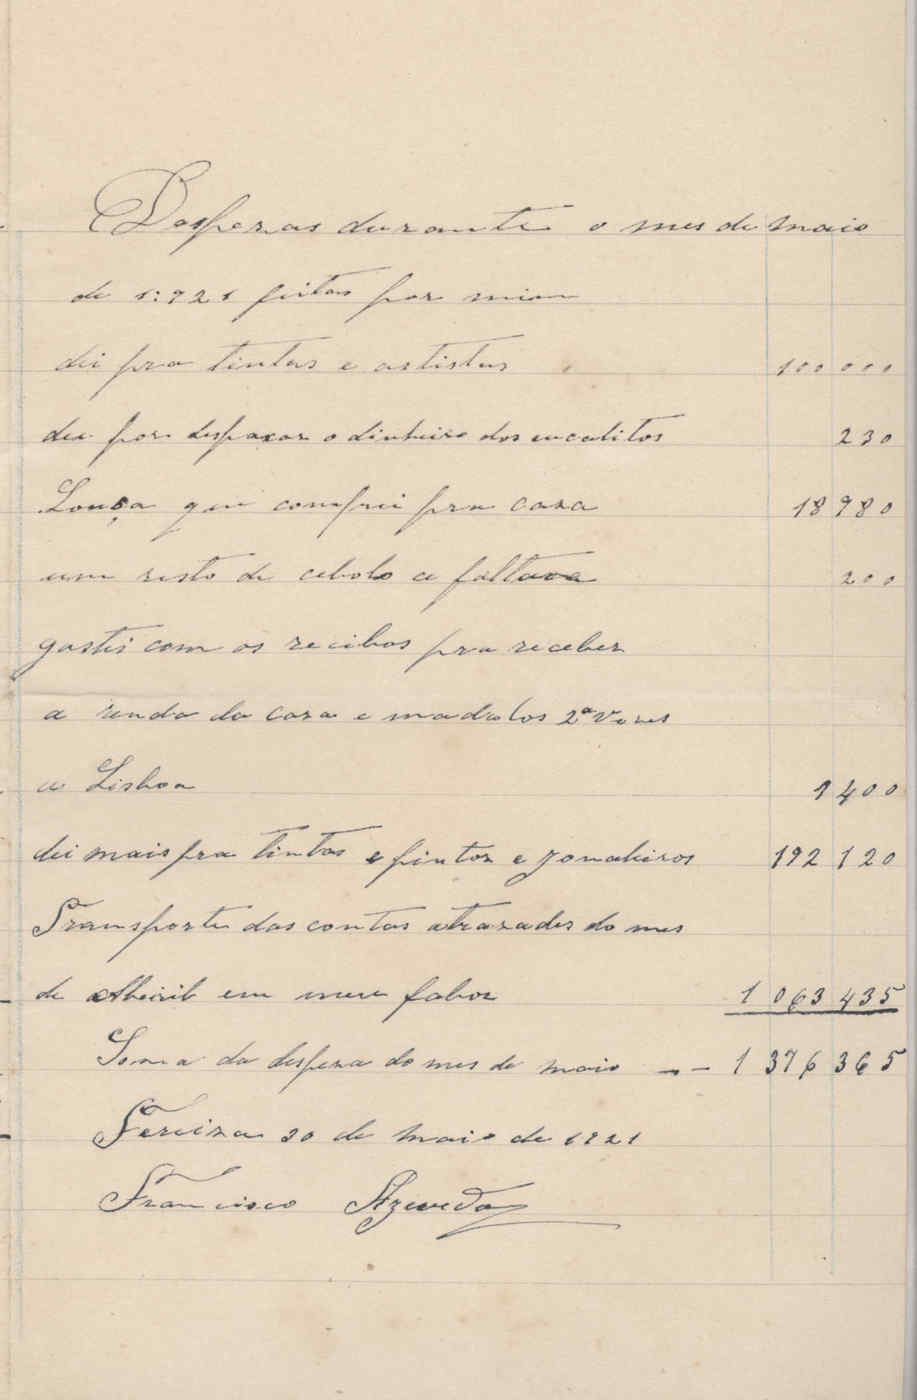 Despezas durante o mes de maio
de 1:921 feitas por mim
dei pra tintas e artistas 100 000
dei por despaxar o dinheiro dos eucalitos 230
Louça que comprei pra caza 18 980
um resto de cebola a faltava 200
gastei com os recibos pra receber
a renda da caza e madalos 2ª vezes
a Lisboa 1 400
dei mais pra tintas e pintor e jornaleiros 192 120
Transporte das contas atrazades do mes
de Abeiril em meu fabor 1 063 435
Soma da despeza do mes de maio -- 1 376 365
Fereiza 30 de maio de 1921
Francisco Azevedo